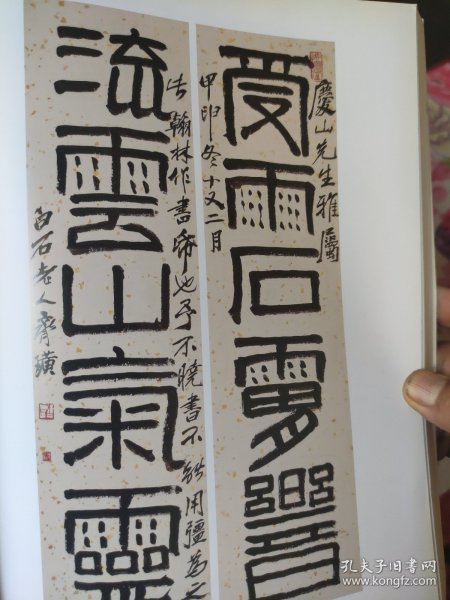 慶山先生雅屬
受雨石響
甲申冬十又二月
此翰林作書帋也予不曉書不能用彊為之
流雲山氣靈
白石老人齊璜
孔夫子旧书网
www.kongfz.com